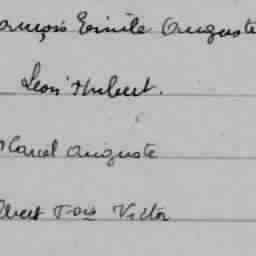 ançois Emile Auguste
Léon Hubert.
Marcel Auguste
Albert Fois Victor